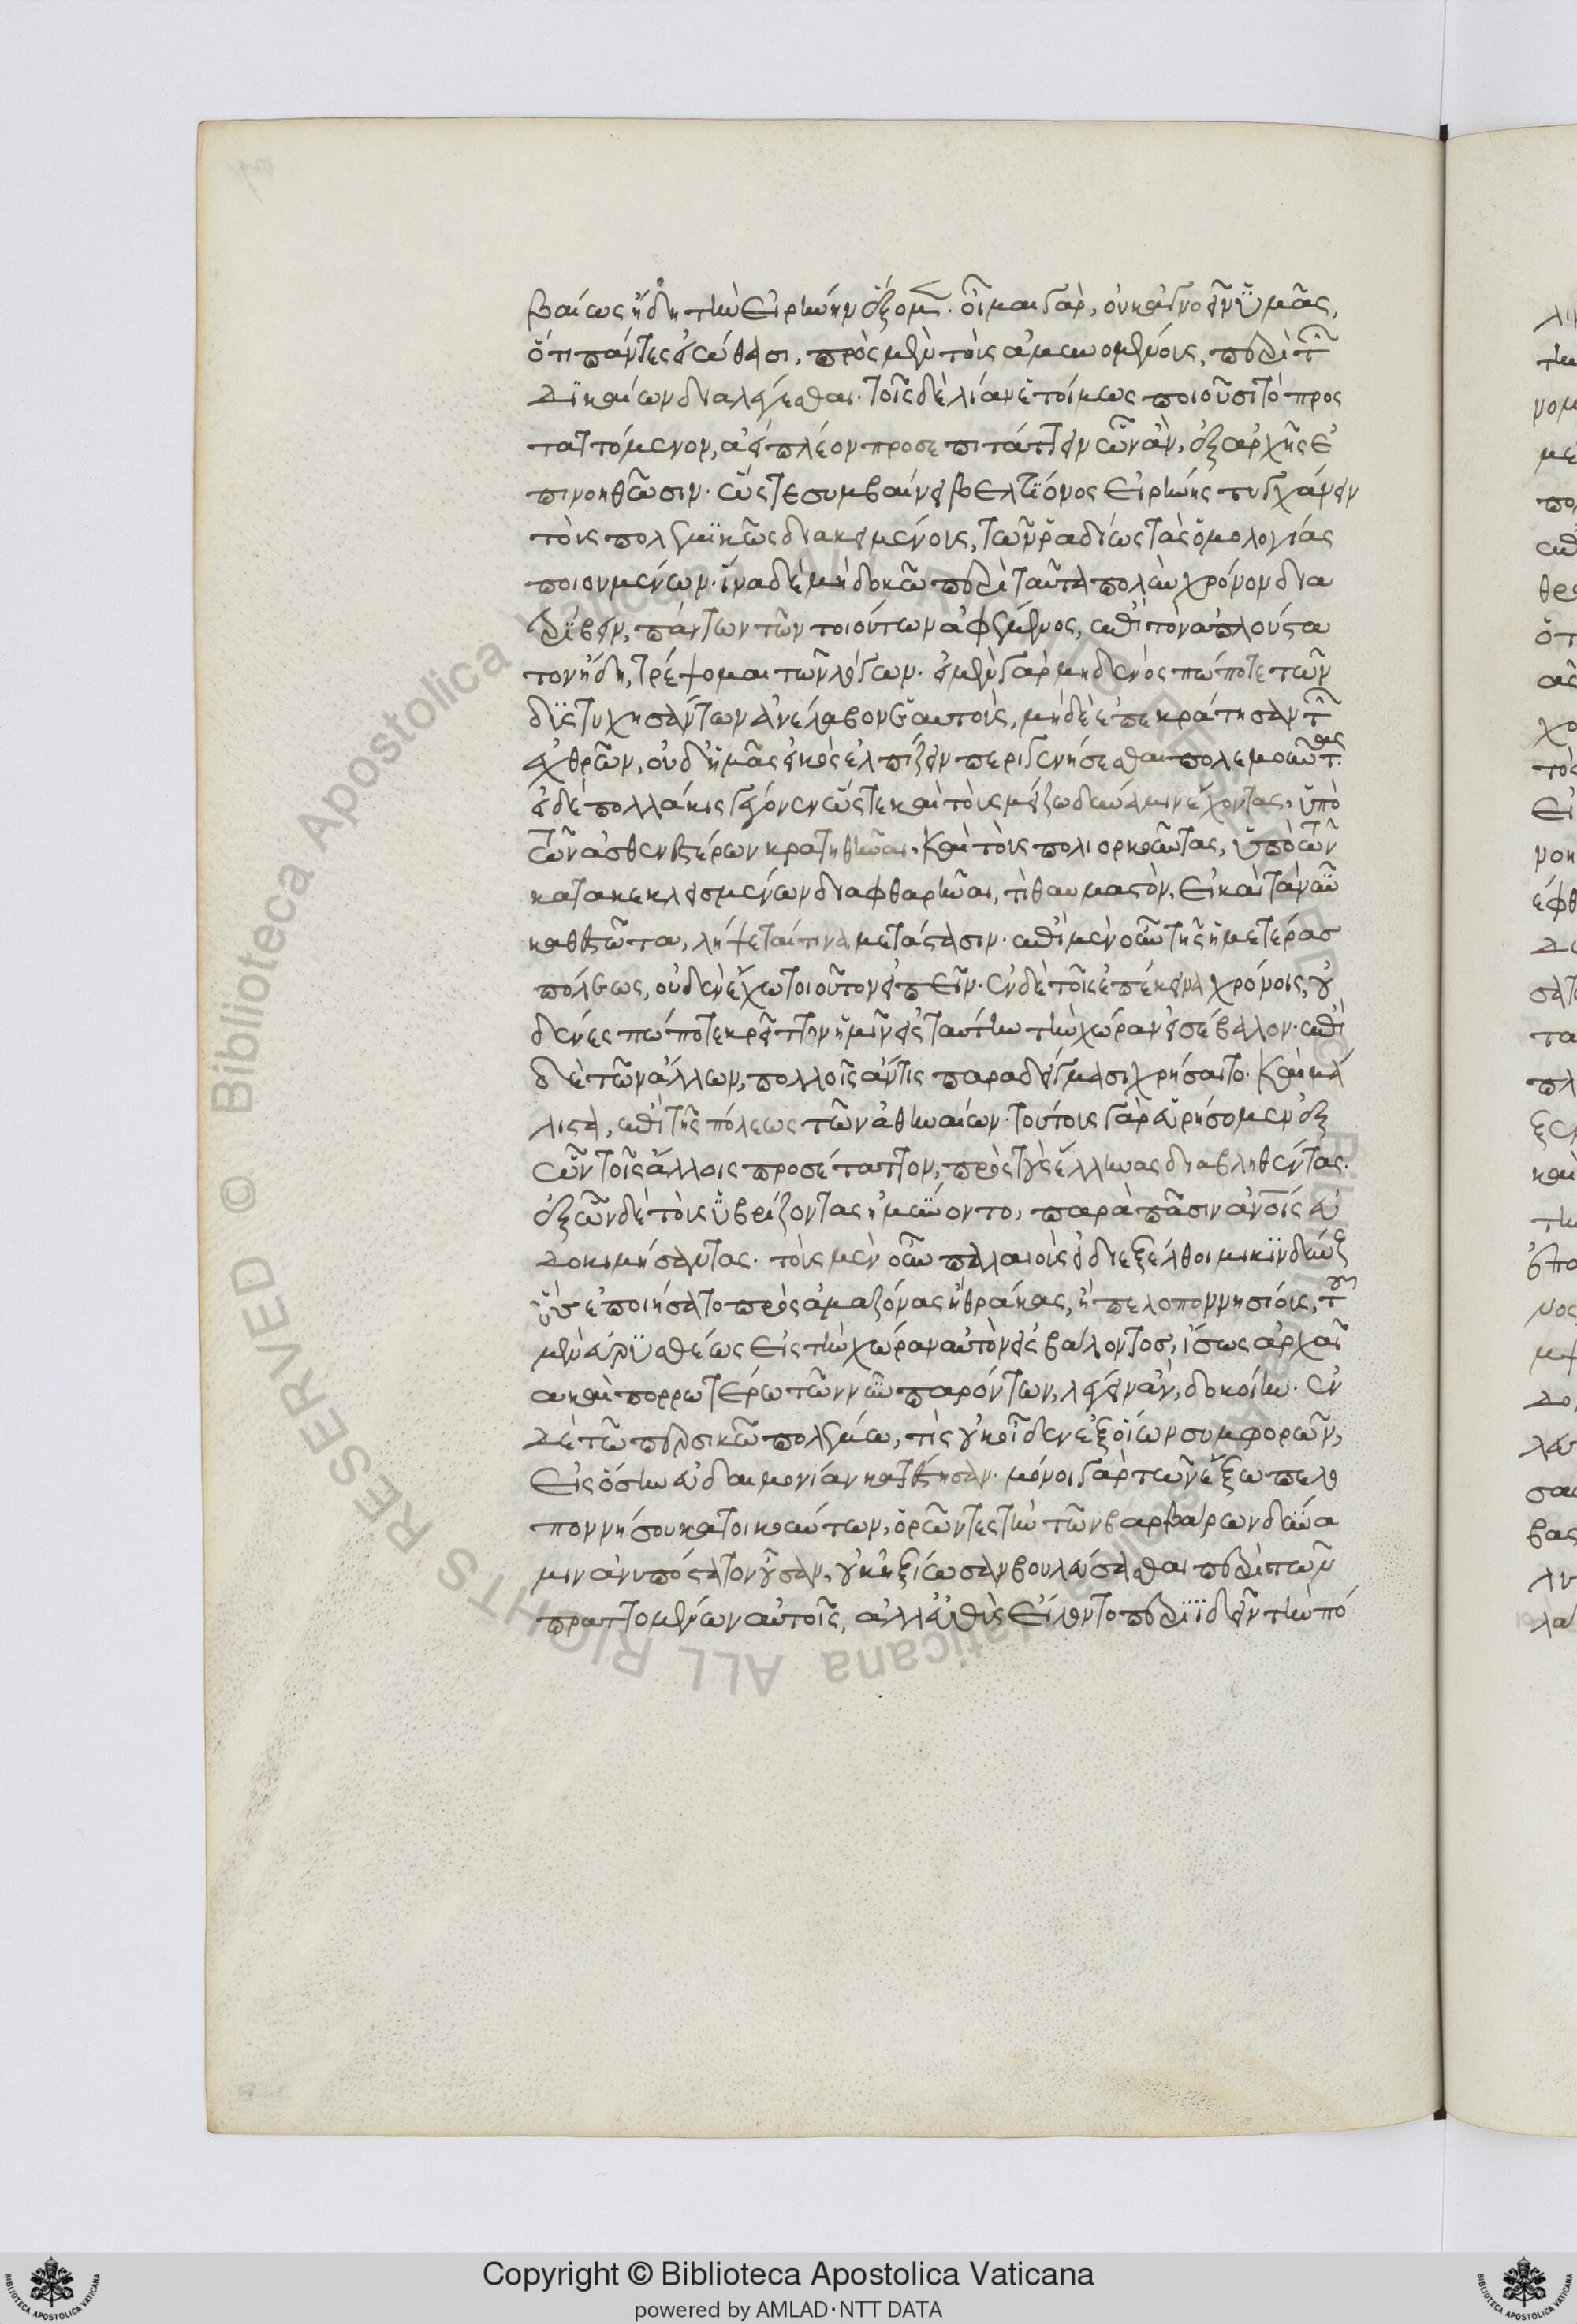 βαίως ἤδη τὴν εἰρήνην ἕξομεν. οἶμαι γὰρ, οὐκ ἀγνοεῖν ὑμᾶς,
ὅτι πάντες εἰώθασι, πρὸς μὲν τοὺς ἀμυνομένους, περὶ τῶν
δικαίων διαλέγεσθαι· τοῖς δὲ λίαν ἑτοίμως ποιοῦσι τὸ προς
ταττόμενον, ἀεὶ πλέον προσεπιτάττειν ὧν ἂν, ἐξ ἀρχῆς ἐ
πινοηθῶσιν· ὥστε συμβαίνει βελτίονος εἰρήνης τυγχάνειν
τοὺς πολεμικῶς διακειμένους, τῶν ῥαδίως τὰς ὁμολογίας
ποιουμένων· ἵνα δὲ μὴ δοκῶ περὶ ταῦτα πολὺν χρόνον δια
τρίβειν, πάντων τῶν τοιούτων ἀφέμενος, ἐπὶ τὸν ἁπλούστα
τον ἤδη, τρέψομαι τῶν λόγων· εἰ μὲν γὰρ μηδενὸς πώποτε τῶν
δυστυχησάντων ἀνέλαβον ἑαυτοὺς, μηδὲ ἐπεκράτησαν τῶν
ἐχθρῶν, οὐδ' ἡμᾶς εἰκὸς ἐλπίζειν περιγενήσεσθαι πολεμοῦντας·
εἰ δὲ πολλάκις γέγονεν ὥστε καὶ τοὺς μείζω δύναμιν ἔχοντας, ὑπὸ
τῶν ἀσθενεστέρων κρατηθῆναι, καὶ τοὺς πολιορκοῦντας, ὑπὸ τῶν
κατακεκλεισμένων διαφθαρῆναι, τί θαυμαστὸν, εἰ καὶ τὰ νῦν
καθεστῶτα, λήψεταί τινα μετάστασιν· ἐπὶ μὲν οὖν τῆς ἡμετέρας
πόλεως, οὐδὲν ἔχω τοιοῦτον εἰπεῖν· ἐν δὲ τοῖς ἐπέκεινα χρόνοις, οὐ
δένες πώποτε κρείττον ἡμῶν εἰς ταύτην τὴν χώραν εἰσέβαλον· ἐπὶ
δὲ τῶν ἄλλων, πολλοῖς ἄν τις παραδείγμασι χρήσαιτο. καὶ μά
λιστα, ἐπὶ τῆς πόλεως τῶν ἀθηναίων· τούτους γὰρ εὑρήσομεν ἐξ
ὧν τοῖς ἄλλοις προσέταττον, πρὸς τοὺς ἕλληνας διαβληθέντας·
ἐξ ὧν δὲ τοὺς ὑβρίζοντας ἠμύνοντο, παρὰ πᾶσιν ἀνθρώποις εὐ
δοκιμήσαντας· τοὺς μὲν οὖν παλαιοὺς εἰ διεξέλθοιμι κινδύνους
οὓς ἐποιήσαντο πρὸς ἀμαζόνας ἢ θρᾶκας, ἢ πελοποννησίους, τοὺς
μὲν εὐρυσθέως εἰς τὴν χώραν αὐτῶν εἰσβαλόντος, ἴσως ἀρχαῖ
α καὶ πορρωτέρω τῶν νῦν παρόντων, λέγειν ἂν, δοκοίην· ἐν
δὲ τῶ περσικῶ πολέμω, τίς οὐκ οἶδεν ἐξ οἵων συμφορῶν,
εἰς ὅσην εὐδαιμονίαν κατέστησαν· μόνοι γὰρ τῶν ἔξω πελο
ποννήσου κατοικούντων, ὁρῶντες τὴν τῶν βαρβάρων δύνα
μιν ἀνυπόστατον οὖσαν, οὐκ ἠξίωσαν βουλεύσασθαι περὶ τῶν
πραττομένων αὐτοῖς, ἀλλ' εὐθὺς εἵλοντο περιϊδεῖν τὴν πό